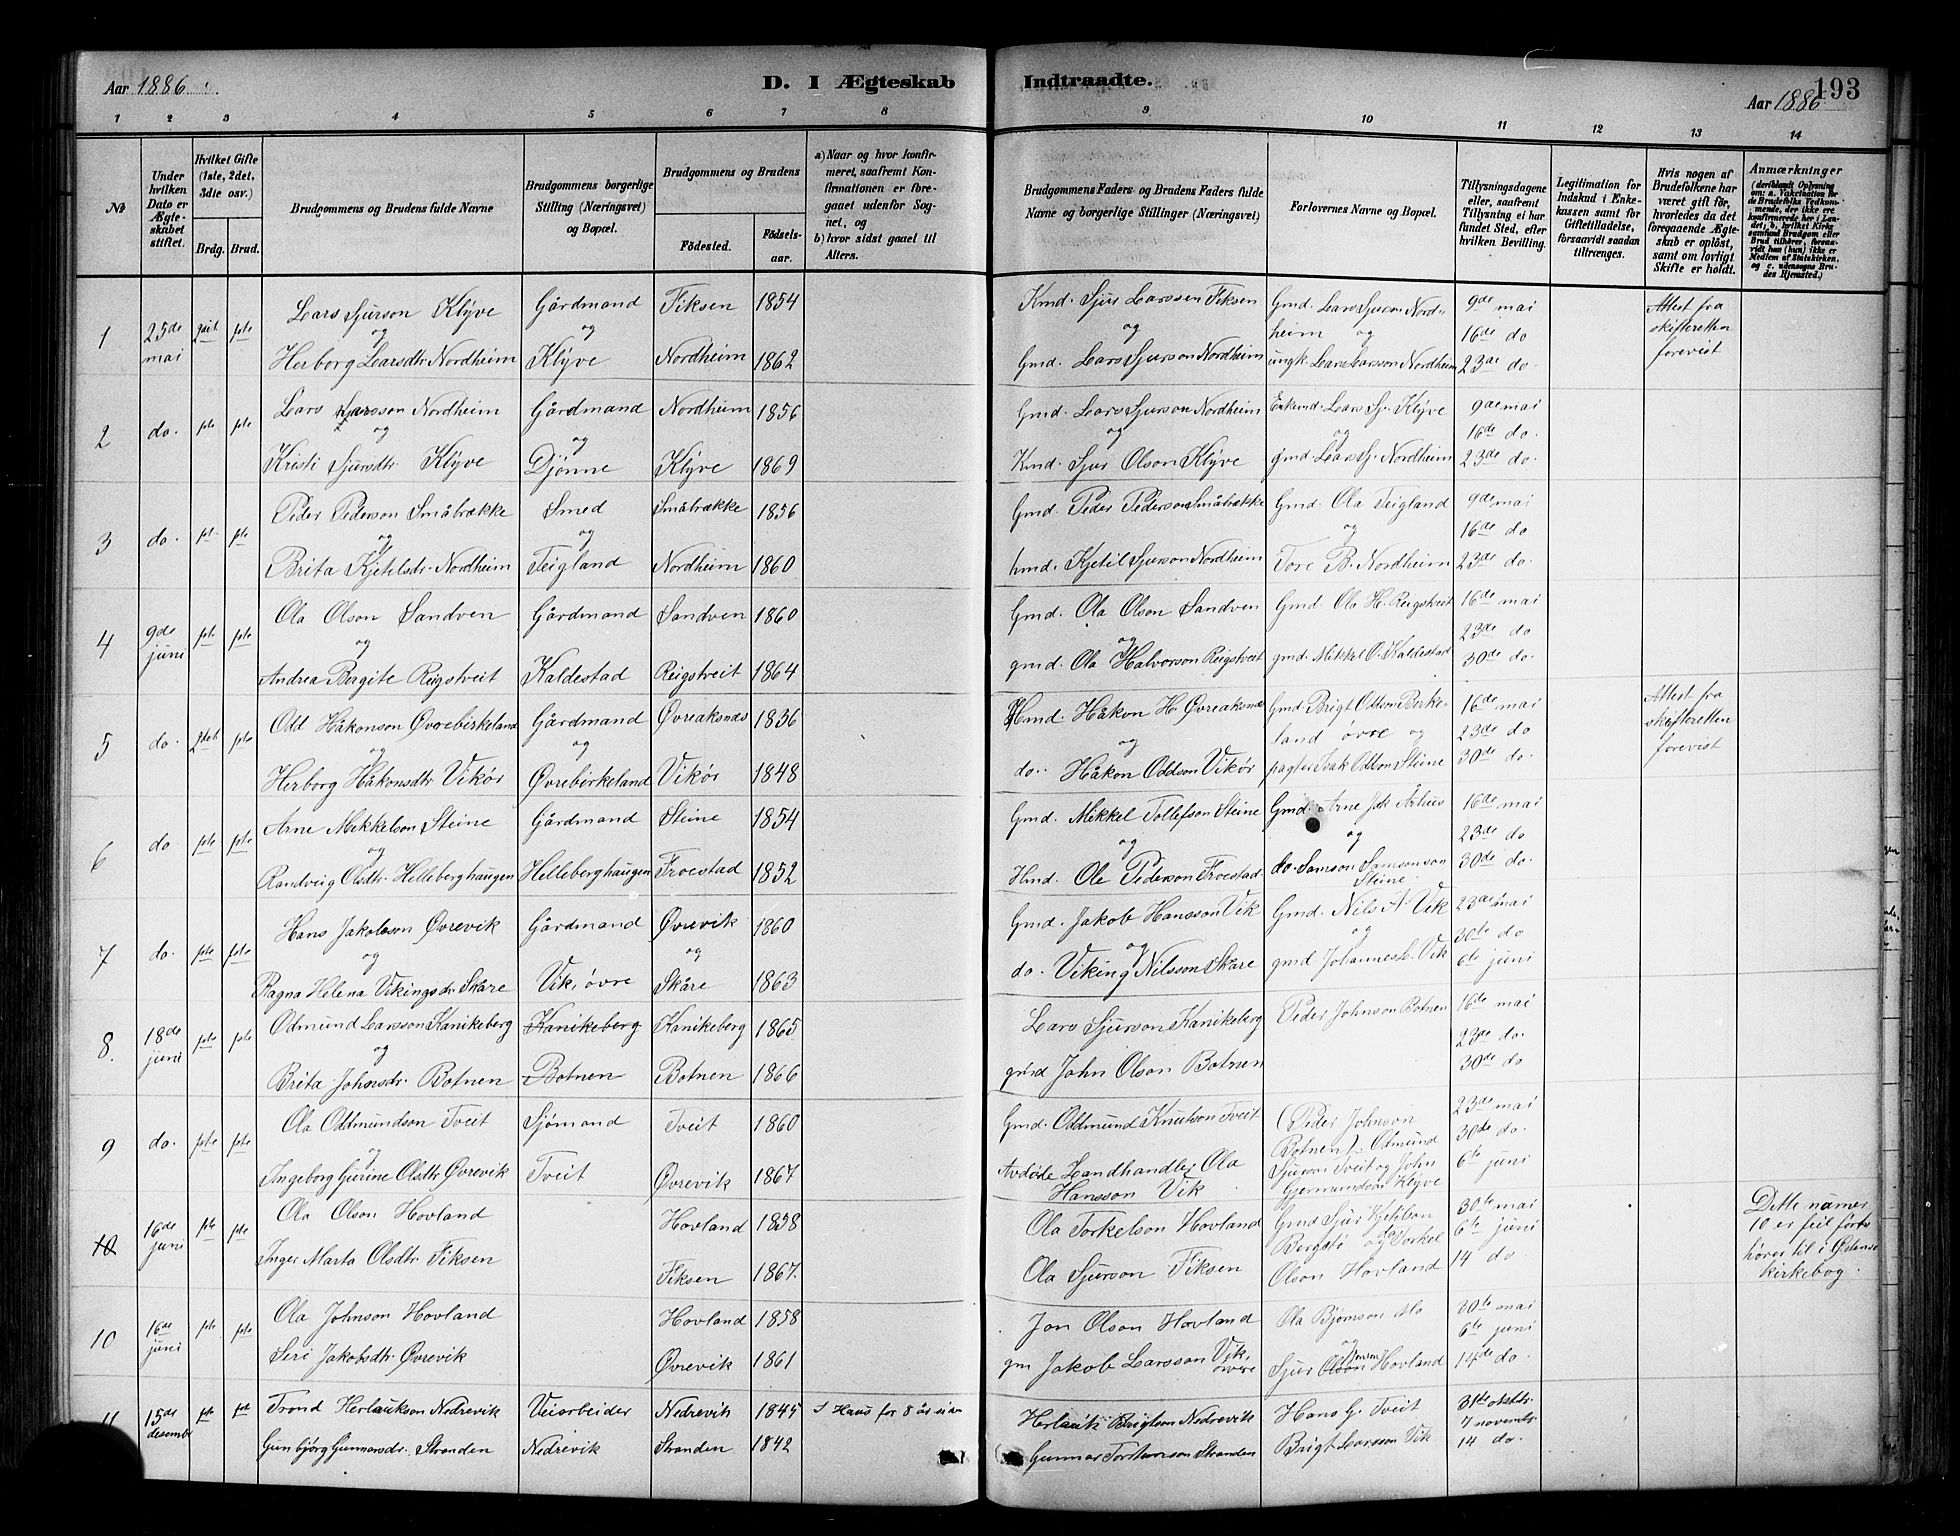 Aar 1886.
D. I Ægteskab
Indtraadte.
193
Aar 1886
1 2 3 4 5 6 7 8 9 10 11 12 13 14
No
Under hvilken Dato er Ægteskabet stiftet.
Hvilket Gifte (1ste, 2det, 3die osv.)
Brdg. Brud.
Brudgommens og Brudens fulde Navne
Brudgommens borgerlige Stilling (Næringsvei) og Bopæl.
Brudgommens og Brudens
Födested.
Födselsaar.
a) Naar og hvor konfirmeret, saafremt Konfirmationen er foregaaet udenfor Sognet, og
b) hvor sidst gaaet til Alters.
Brudgommens Faders og Brudens Faders fulde Navne og borgerlige Stillinger (Næringsvei)
Forlovernes Navne og Bopæl.
Tillysningsdagene eller, saafremt Tillysning ei har fundet Sted, efter hvilken Bevilling.
Legitimation for Indskud i Enkekassen samt for Giftetilladelse, forsaavidt saadan tiltrænges.
Hvis nogen af Brudefolkene har været gift før, hvorledes da det foregaaende Ægteskab er oplöst, samt om lovligt Skifte er holdt.
Anmærkninger
(deriblandt Oplysning om: a. Vakcination for de Brudefolks Vedkommende, der ikke ere konfirmerede her i Landet; b. hvilket Kirkesamfund Brudgom eller Brud tilhører, forsaavidt han (hun) ikke er Medlem af Statskirken, og c. udensogns Brudes Hjemsted.)
1 25de mai 2det pste Lars Sjurson Klÿve Gårdmand Fiksen 1854 Kmd. Sjur Larssen Fiksen Gmd. Lars Sjurson Nord= 9de mai Attest fra
og og og heim og 16de do skifteretten
Herborg Larsdtr Nordheim Klÿve Nordheim 1862 Gmd. Lars Sjurson Nordheim ungk. Lars Larsson Nordheim 23de do. forevist
2 do. pste pste Lars Larsson Nordheim Gårdmand Nordheim 1856 Gmd. Lars Sjurson Nordheim Enkmd. Lars Sj. Klÿve 9de mai
og og og og 16de do.
Kristi Sjursdtr. Klÿve Djønne Klÿve 1869 Kmd. Sjur Olson Klÿve gmd. Lars Sj. Nordheim 23de do.
3 do. pst. pste Peder Pederson Småbrække Smed Småbrække 1856 Gmd. Peder Pederson Småbrække Gmd. Ola Teigland 9de mai
og og og 16de do
Brita Kjetilsdr. Nordheim Teigland Nordheim 1860 hmd. Kjetil Sjurson Nordheim Tore B. Nordheim 23de do.
4 9de juni pste pste Ola Olson Sandven Gårdmand Sandven 1860 Gmd. Ola Olson Sandven Gmd Ola H. Reigstveit 16de mai
og og 23de do
Andrea Bergite Reigstveit Kaldestad Reigstveit 1864 gmd. Ola Halvorson Reigstveit gmd. Mikkel O. Kaldestad 30de do.
5 do. 2det pste Odd Håkonson Øvrebirkeland Gårdmand Øvreaksnes 1836 Hmd. Håkon H. Øvreaksnæs Gmd. Brigt Oddson Birke= 16de mai Attest fra
og og og land øvre og 23de do skifteretten
Herborg Håkonsdtr Vikør Øvrebirkeland Vikør 1848 do. Håkon Oddson Vikør pagter Isak Oddson Steine 30de do. forevist
6 do pste pste Arne Mikkelson Steine Gårdmand Steine 1854 Gmd. Mikkel Tollefson Steine Gmd. Arne Jak. Århus 16de mai
og og og 23de do
Randveig Olsdtr. Helleberghaugen Helleberghaugen Froestad 1852 Hmd. Ole Pederson Froestad do. Samson Samsonson Steine. 30de do.
7 do. pste pste Hans Jakobson Øvrevik Gårdmand Øvrevik 1860 Gmd. Jakob Hansson Vik Gmd. Nils A. Vik 23de mai
og og og og 30te do
Ragna Helena Vikingsdr. Skåre Vik, øvre Skåre 1863 do. Viking Nilsson Skare gmd Johannes L. Vik 6te juni
8. 18de juni pste pste Odmund Larsson Kanikeberg Kanikeberg Kanikeberg 1865 Lars Sjurson Kanikeberg Peder Johnson Botnen 16de mai
og 23de do.
Brita Johnsdr. Botnen Botnen Botnen 1866 gmd John Olson Botnen 30de do
9 do. pste pste Ola Oddmundson Tveit Sjømand Tveit 1860 Gmd. Oddmund Knutson Tveit (Peder Johnson 23de mai
og Botnen). Odmund 30de do.
Ingeborg Gurine Olsdtr. Øvrevik Tveit Øvrevik 1867 Avdøde Landhandler Ola Sjurson Tveit og John 6te juni
Hansson Vik Gjermundson Klÿve
10 16de juni pste pste Ola Olson Hovland Hovland 1858 Ola Torkelson Hovland Gmd Sjur Kjetilson 30te mai Dette numer
Bergstø og Torkel 6te juni 10 er feil førte
Inger Marta Olsdtr. Fiksen Fiksen 1867. Ola Sjurson Fiksen Olson Hovland 14 do hører til i Østensø
kirkebog.
10 16de juni pste pste Ola Johnson Hovland Hovland 1858 Jon Olson Hovland Ola Bjørnson Mo 30te mai
og 6te juni
Siri Jakobsdtr. Øvrevik Øvrevik 1861 gm Jakob Larsson Vik, øvre Sjur Olson Hovland 14de do.
11 15de desemb pste pste Trond Herlaukson Nedrevik Veiarbeider Nedrevik 1845 I Haus for 8 år siden Herlauik Brigtson Nedrevik Hans G. Tveit 31te oktobr.
7 novembr.
Gunbjörg Gunnarsdr. Stranden Nedrevik Stranden 1842 Gunnar Torstenson Stranden Brigt Larsson Vik 14 do.